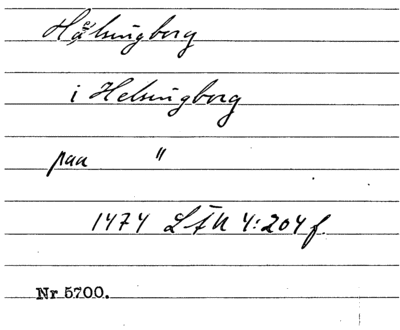 Hälsingborg
i Helsingborg
paa "
1474 LFU 4:204 f.
Nr 5700.